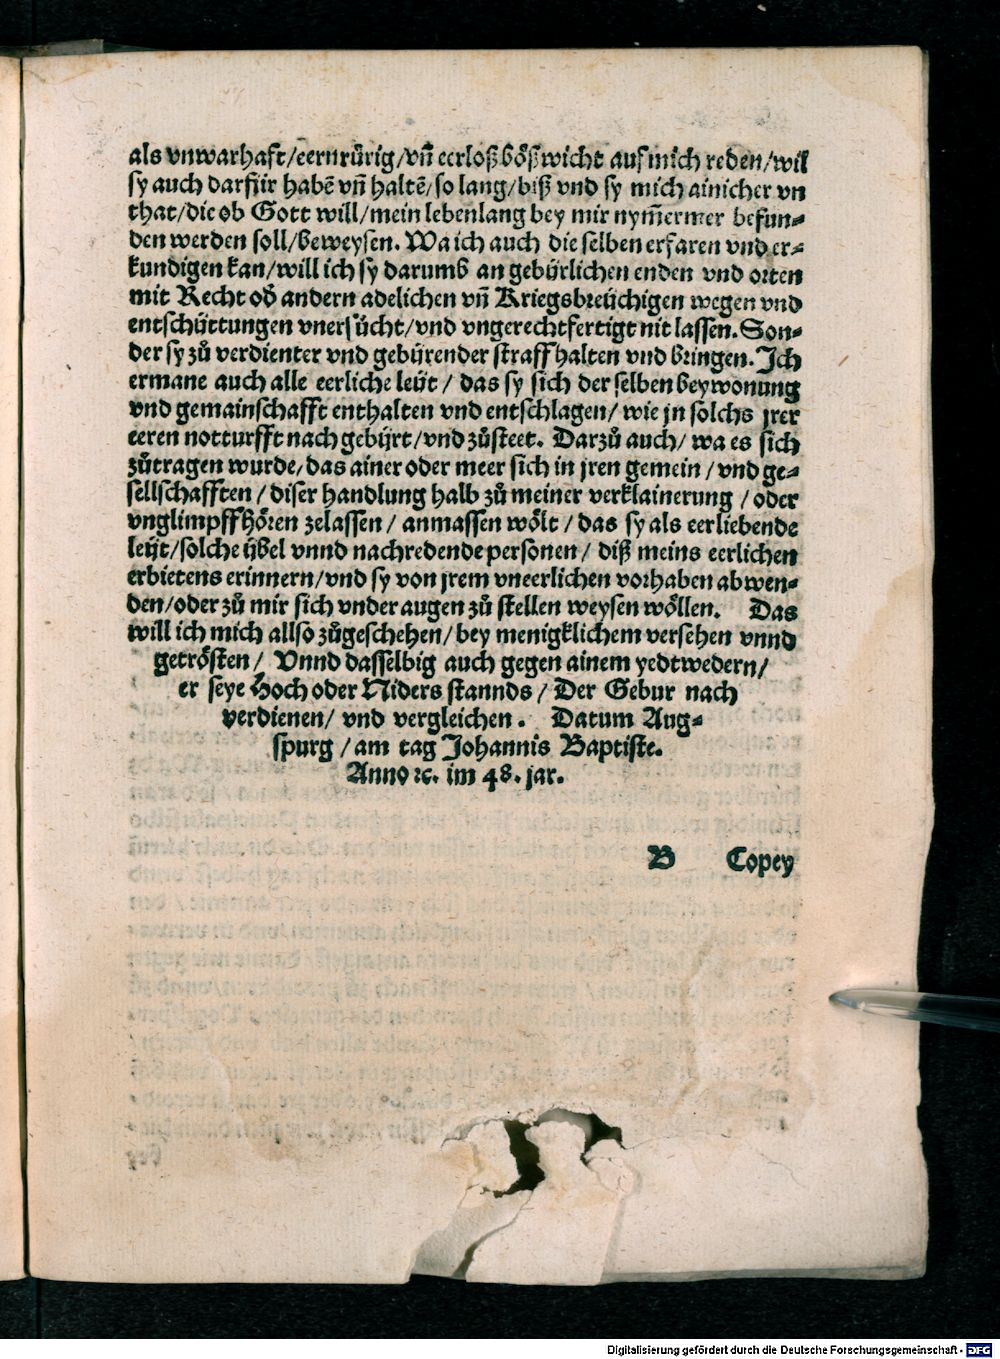 als vnwarhaft/eernrürig/vn̄ eerloß bößwicht auf mich reden/wil
sy auch darfür habē vn̄ haltē/so lang/biß vnd sy mich ainicher vn
that/die ob Gott will/mein lebenlang bey mir nym̄ermer befun⸗
den werden soll/beweysen. Wa ich auch die selben erfaren vnd er⸗
kundigen kan/will ich sy darumb an gebürlichen enden vnd orten
mit Recht od̄ andern adelichen vn̄ Kriegsbreüchigen wegen vnd
entschüttungen vnersücht/vnd vngerechtfertigt nit lassen. Son⸗
der sy zů verdienter vnd gebürender straff halten vnd bringen. Ich
ermane auch alle eerliche leüt / das sy sich der selben beywonung
vnd gemainschafft enthalten vnd entschlagen/ wie jn solchs jrer
eeren notturfft nach gebürt/vnd zůsteet. Darzů auch/ wa es sich
zůtragen wurde, das ainer oder meer sich in jren gemein / vnd ge⸗
sellschafften / diser handlung halb zů meiner verklainerung / oder
vnglimpff hören zelassen / anmassen wölt / das sy als eerliebende
leüt/solche übel vnnd nachredende personen / diß meins eerlichen
erbietens erinnern/vnd sy von jrem vneerlichen vorhaben abwen⸗
den/oder zů mir sich vnder augen zů stellen weysen wöllen. Das
will ich mich allso zůgeschehen/bey menigklichem versehen vnnd
getrösten / Vnnd dasselbig auch gegen ainem yedtwedern/
er seye Hoch oder Niders stannds / Der Gebur nach
verdienen/ vnd vergleichen. Datum Aug⸗
spurg / am tag Johannis Baptiste.
Anno ꝛc. im 48. jar.
B Copey
Digitalisierung gefördert durch die Deutsche Forschungsgemeinschaft - DFG